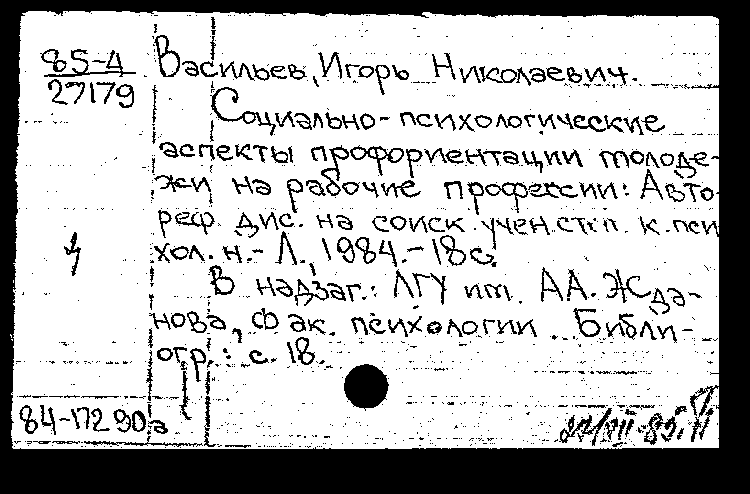 85-4
27179
Васильев, Игорь Николаевич.
Социально-психологические
аспекты профориентации молоде-
жи на рабочие профессии: Авто-
реф. дис. на соиск. учен. степ. к. пси
хол. н.- Л., 1984.- 18 с.
В надзаг.: ЛГУ им. А.А. Жда-
нова, Фак. психологии. Библи-
огр.: с. 18.
84-17290а